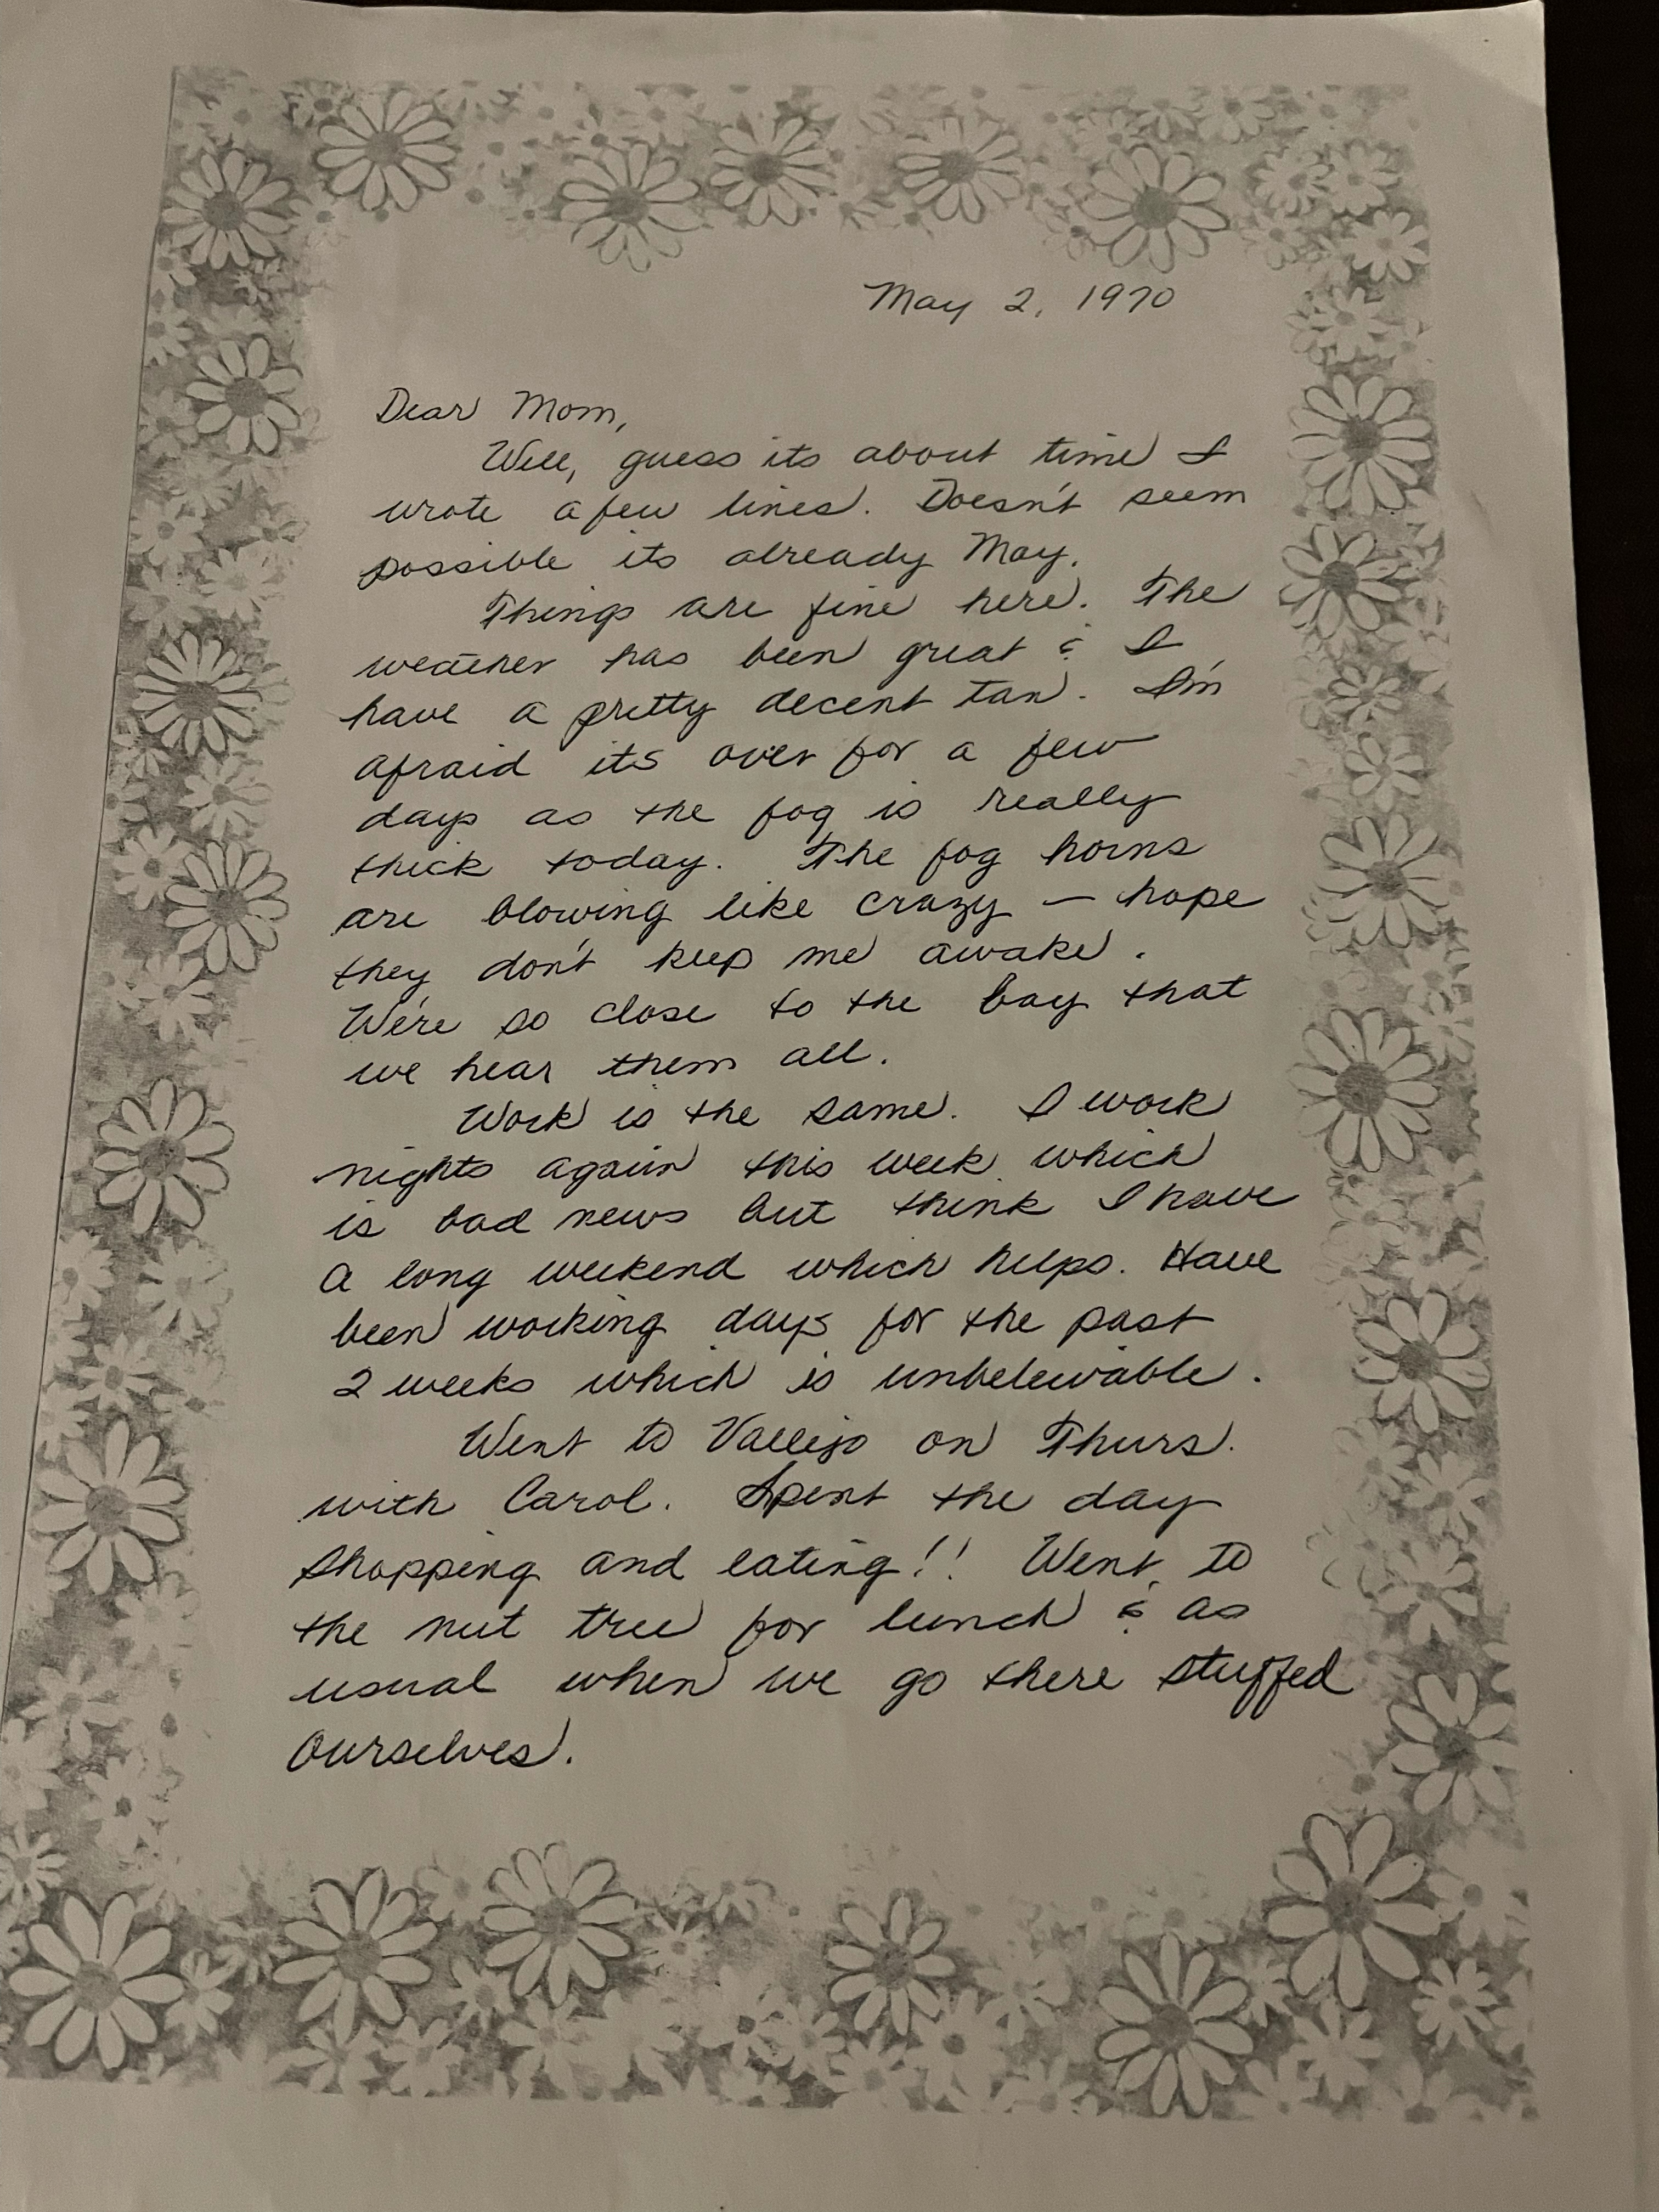 May 2, 1970
Dear Mom,
Well, guess its about time I
wrote a few lines. Doesn't seem
possible its already May.
Things are fine here. The
weather has been great & I
have a pretty decent tan. I'm
afraid its over for a few
days as the fog is really
thick today. The fog horns
are blowing like crazy — hope
they don't keep me awake.
We're so close to the bay that
we hear them all.
Work is the same. I work
nights again this week which
is bad news but think I have
a long weekend which helps. Have
been working days for the past
2 weeks which is unbeleivable.
Went to Vallejo on Thurs.
with Carol. Spent the day
shopping and eating!! Went to
the nut tree for lunch & as
usual when we go there stuffed
ourselves.